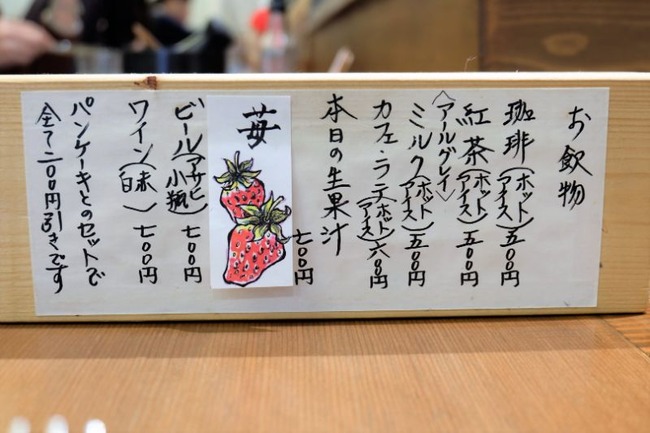 お飲物
珈琲(ホット アイス)五〇〇円
紅茶(ホット アイス)五〇〇円
〈アールグレイ〉
ミルク(ホット アイス)五〇〇円
カフェ・ラテ(ホット アイス)六〇〇円
本日の生果汁
苺
七〇〇円
ビール(アサヒ 小瓶)七〇〇円
ワイン(赤 白)七〇〇円
パンケーキとのセットで
全て二〇〇円引きです